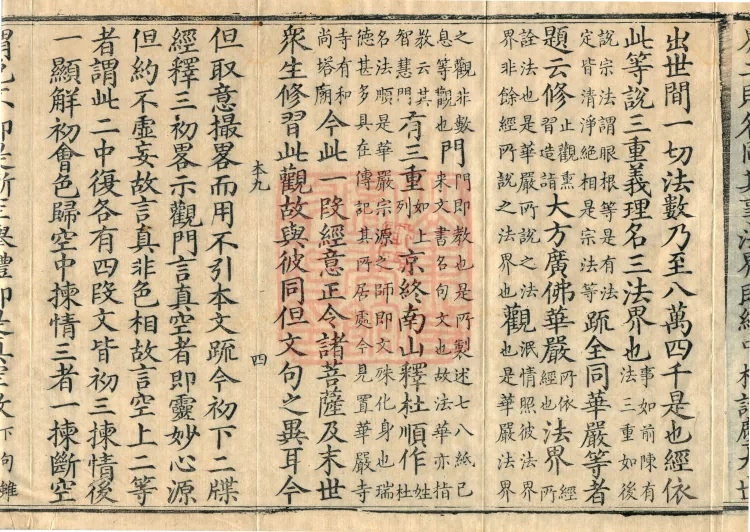 出世間一切法數乃至八萬四千是也經依
此等說三重義理名三法界也事如前陳有
法三重如後
說宗法謂眼根等是有法
定皆清淨絕相是宗法等疏全同華嚴等者
題云修止觀熏
習造詣大方廣佛華嚴所依
經也法界經
所
詮法也是華嚴所說之法
界非餘經所說之法界也觀泯情照彼法界
也是華嚴法界
之觀非數
息等觀也門門即教也是所製述七八紙已
來文書名句文也故法華亦指
教云其
智慧門有三重如上
列京終南山釋杜順作姓
杜
名法順是華嚴宗源之師即文殊化身也瑞
德甚多具在傳記其所居處今見置華嚴寺
寺有和
尚塔廟今此一段經意正令諸菩薩及末世
衆生修習此觀故與彼同但文句之異耳今
本九 四
但取意撮畧而用不引本文疏今初下二牒
經釋三初畧示觀門言真空者即靈妙心源
但約不虛妄故言真非色相故言空上二等
者謂此二中復各有四段文皆初三揀情後
一顯解初會色歸空中揀情三者一揀斷空